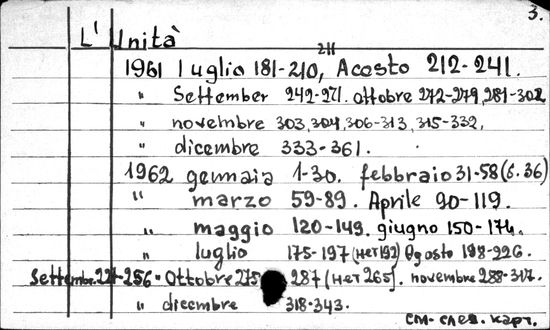 3.
L' Unità
211
1961 luglio 181-210, Agosto 212-241.
" Settember 242-271. ottobre 272-279, 281-302
" novembre 303, 304, 306-313, 315-332,
" dicembre 333-361.
1962 gennaia 1-30. febbraio 31-58 (б. 36)
" marzo 59-89. Aprile 90-119.
" maggio 120-149. giugno 150-174.
" luglio 175-197 (нет 192) Agosto 198-226.
Settembre 227-256 " Ottobre 257 287 (нет 265). novembre 288-317.
" dicembre 318-343.
См. след. карт.